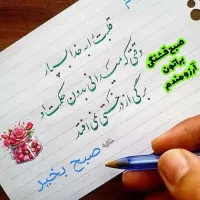 قلبت را به خدا بسپار
وقتی که میدانی بدون حکمت او
برگی از درختی نمی افتد
صبح بخیر
صبح قشنگی
براتون
آرزومندم